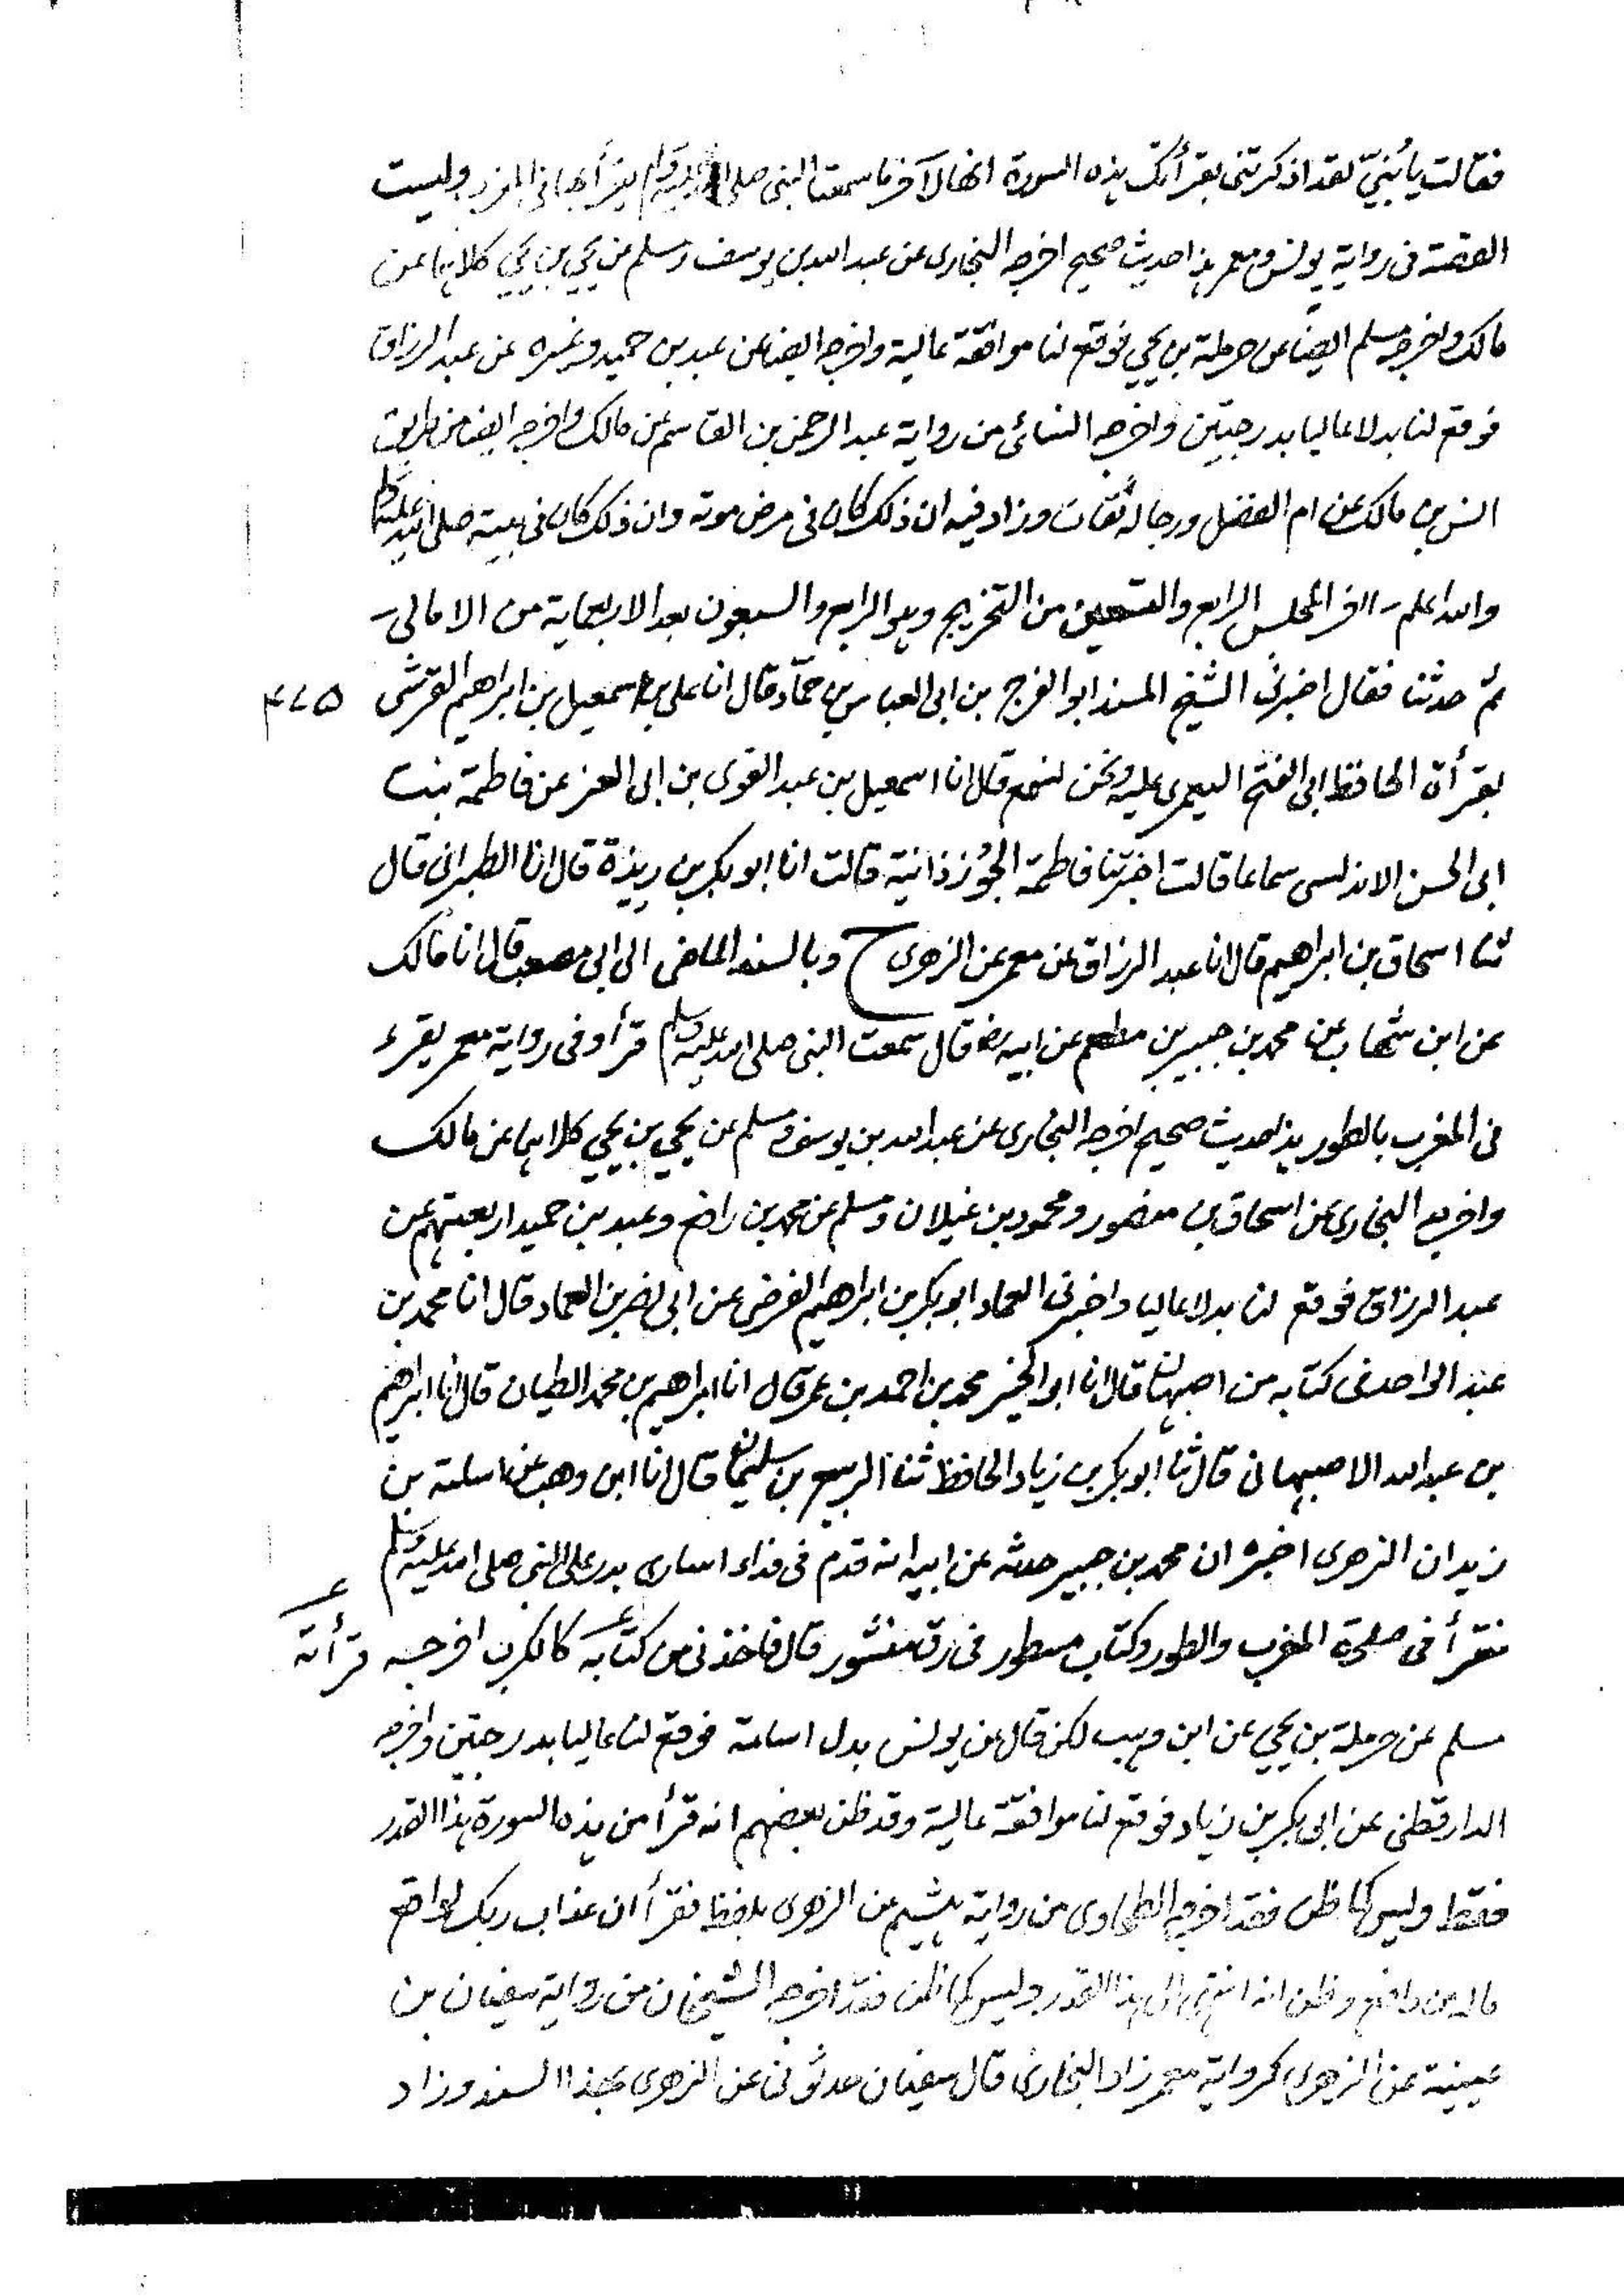 فقالت يا بُنيّ لقد اذكرتنى بقرأتك هذه السورة انها لآخر ما سمعت النبى صلى الله عليه وسلم يقرأ بها فى المغرب وليست
القصة فى رواية يونس ومعمر هذا حديث صحيح اخرجه البخارى عن عبد الله بن يوسف ومسلم عن يحيى بن يحيى كلاهما عن
مالك واخرجه مسلم ايضا عن حرملة بن يحيى فوقع لنا موافقة عالية واخرجه ايضا عن عبد بن حميد وغيره عن عبد الرزاق
فوقع لنا بدلا عاليا بدرجتين واخرجه النسائى من رواية عبد الرحمن بن القاسم عن مالك واخرجه ايضا من طريق
انس بن مالك عن ام الفضل ورجاله ثقات وزاد فيه ان ذلك كان فى مرض موته وان ذلك كان فى بيته صلى الله عليه وسلم
والله اعلم آخر المجلس الرابع والتسعين من التخريج وهو الرابع والسبعون بعد الاربعماية من الامالى
ثم حدثنا فقال اخبرنى الشيخ المسند ابو الفرج بن ابى العباس بن حماد قال انا على بن اسمعيل بن ابراهيم القرشى ٤٧٥
بقرأة الحافظ ابى الفتح اليعمرى عليه ونحن نسمع قال انا اسمعيل بن عبد القوى بن ابى العز عن فاطمة بنت
ابى الحسن الاندلسى سماعا قالت اخبرتنا فاطمة الجُوْزذانية قالت انا ابو بكر بن ريذة قال انا الطبرانى قال
ثنا اسحاق بن ابراهيم قال انا عبد الرزاق عن معمر عن الزهرى ح وبالسند الماضى الى ابى مصعب قال انا مالك
عن ابن شهاب عن محمد بن جبير بن مطعم عن ابيه رضـ قال سمعت النبى صلى الله عليه وسلم قرأ وفى رواية معمر يقرء
فى المغرب بالطور هذا حديث صحيح اخرجه البخارى عن عبد الله بن يوسف ومسلم عن يحيى بن يحيى كلاهما عن مالك
واخرجه البخارى عن اسحاق بن منصور ومحمود بن غيلان ومسلم عن محمد بن رافع وعبد بن حميد اربعتهم عن
عبد الرزاق فوقع لنا بدلا عاليا واخبرنى العماد ابو بكر بن ابراهيم الفرضى عن ابى نصر بن العماد قال انا محمد بن
عبد الواحد فى كتابه من اصبهان قال انا ابو الخير محمد بن احمد بن عمر قال انا ابراهيم بن محمد الطيان قال انا ابراهيم
بن عبد الله الاصبهانى قال ثنا ابو بكر بن زياد الحافظ ثنا الربيع بن سليمان قال انا ابن وهب عن اسامة بن
زيد ان الزهرى اخبره ان محمد بن جبير حدثه عن ابيه انه قدم فى فداء اسارى بدر على النبى صلى الله عليه وسلم
فقرأ فى صلوة المغرب والطور وكتاب مسطور فى رق منشور قال فاخذنى من كتابه كالكرب اخرجه قرأته
مسلم عن حرملة بن يحيى عن ابن وهب لكن قال عن يونس بدل اسامة فوقع لنا عاليا بدرجتين واخرجه
الدارقطنى عن ابى بكر بن زياد فوقع لنا موافقة عالية وقد ظن بعضهم انه قرأ من هذه السورة هذا القدر
فقط وليس كما ظن فقد اخرجه الطحاوى من رواية هشيم عن الزهرى بلفظ فقرأ ان عذاب ربك لواقع
ماله من دافع وظن انه انتهى الى هذا القدر وليس كما ظن فقد اخرجه الشيخان من رواية سفيان بن
عيينة عن الزهرى كرواية معمر زاد البخارى قال سفيان حدثونى عن الزهرى بهذا السند وزاد